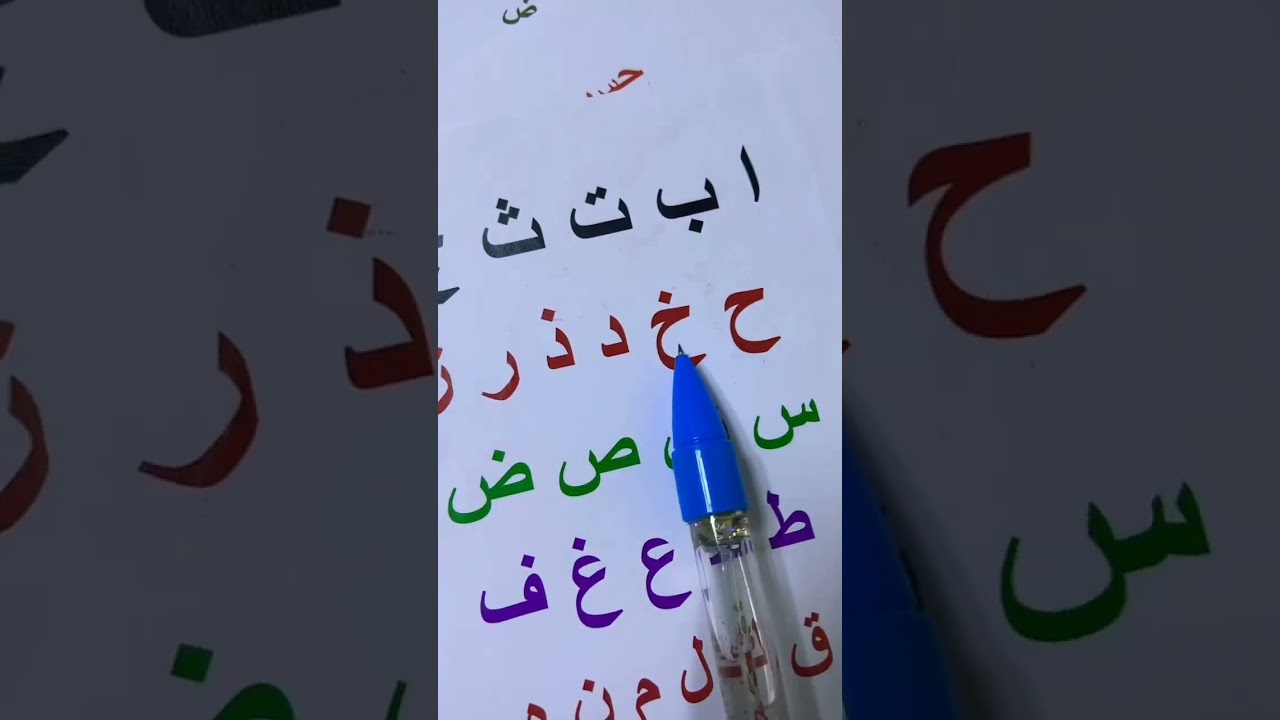 ض
ا ب ت ث
ح خ د ذ ر ز
س ص ض
ط ع غ ف
ق ل م ن